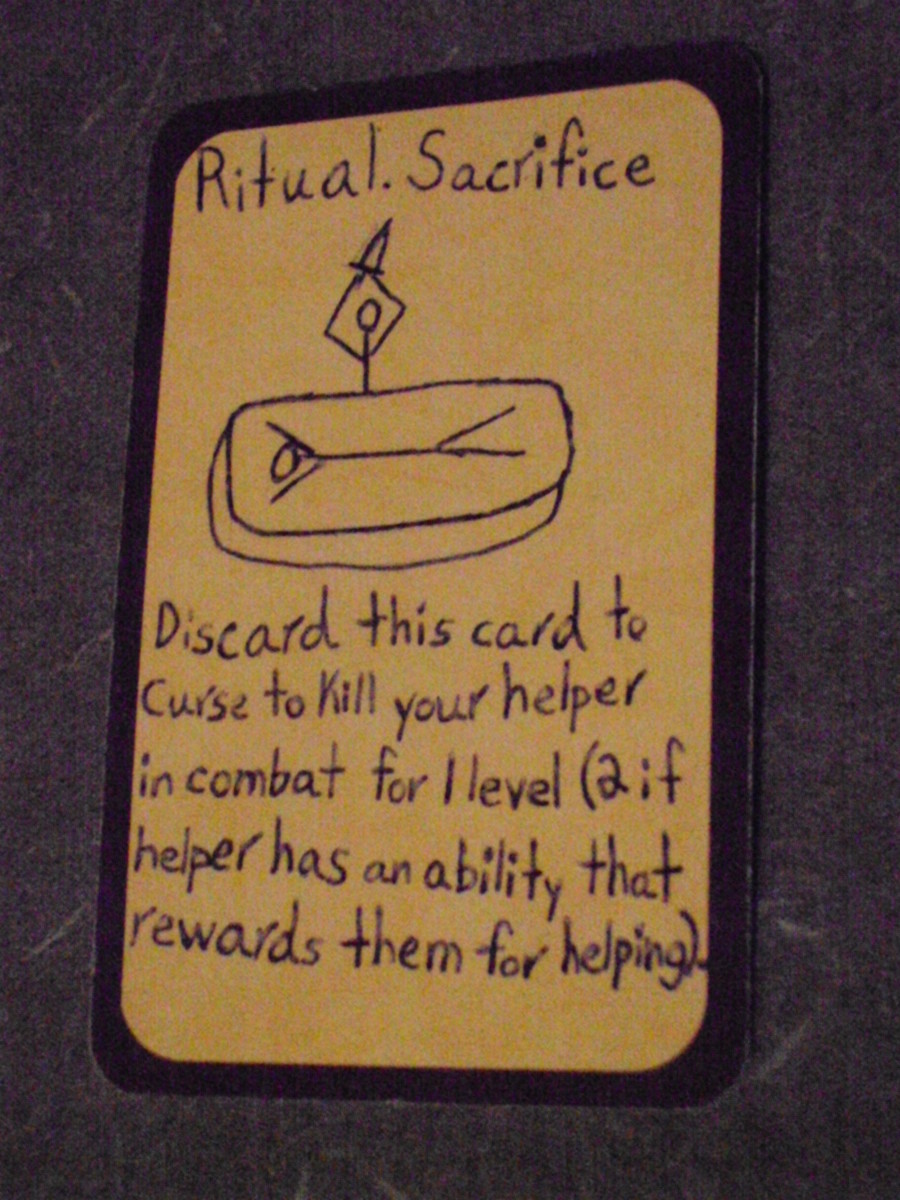 Ritual. Sacrifice
Discard this card to
Curse to Kill your helper
in combat for 1 level (2 if
helper has an ability that
rewards them for helping).